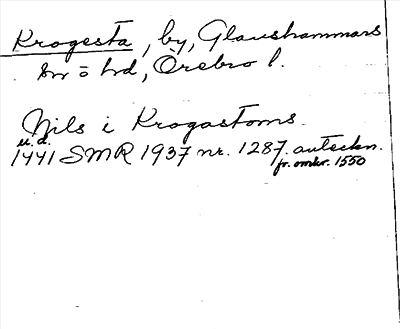 Krogesta, by, Glanshammars
sn o hd, Örebro l.
Nils i Krogastoms.
u.d.
1441 SMR 1937 nr. 1287. anteckn.
fr. omkr. 1550